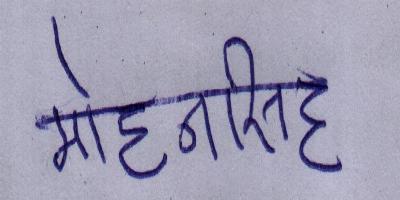 मोहनसिंह